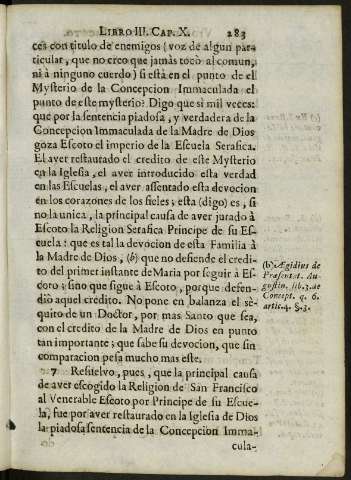 LIBRO III. CAP. X. 283
ces con titulo de enemigos (voz de algun par-
ticular, que no creo que jamàs tocò al comun,
ni à ninguno cuerdo) si està en el punto de el
Mysterio de la Concepcion Immaculada el
punto de este mysterio? Digo que si mil veces:
que por la sentencia piadosa, y verdadera de la
Concepcion Immaculada de la Madre de Dios
goza Escoto el imperio de la Escuela Serafica.
El aver restaurado el credito de este Mysterio
en la Iglesia, el aver introducido esta verdad
en las Escuelas, el aver assentado esta devocion
en los corazones de los fieles; esta (digo) es, si
no la unica, la principal causa de aver jurado à
Escoto la Religion Serafica Principe de su Es-
cuela: que es tal la devocion de esta Familia à
la Madre de Dios, (b) que no defiende el credi-
to del primer instante de Maria por seguir à Es-
coto; sino que sigue à Escoto, porque defen-
diò aquel credito. No pone en balanza el sè-
quito de un Doctor, por mas Santo que sea,
con el credito de la Madre de Dios en punto
tan importante; que sabe su devocion, que sin
comparacion pesa mucho mas este.
(b) Ægidius de
Præsentat. Au-
gustin. lib. 3. de
Concept. q. 6.
artic. 4. §. 3.
7 Resuelvo, pues, que la principal causa
de aver escogido la Religion de San Francisco
al Venerable Escoto por Principe de su Escue-
la, fue por aver restaurado en la Iglesia de Dios
la piadosa sentencia de la Concepcion Imma-
cula-